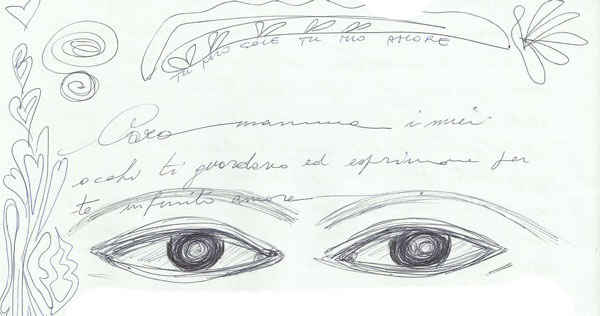 TU MIO SOLE TU MIO AMORE
Cara mamma i miei
occhi ti guardano ed esprimono per
te infinito amore